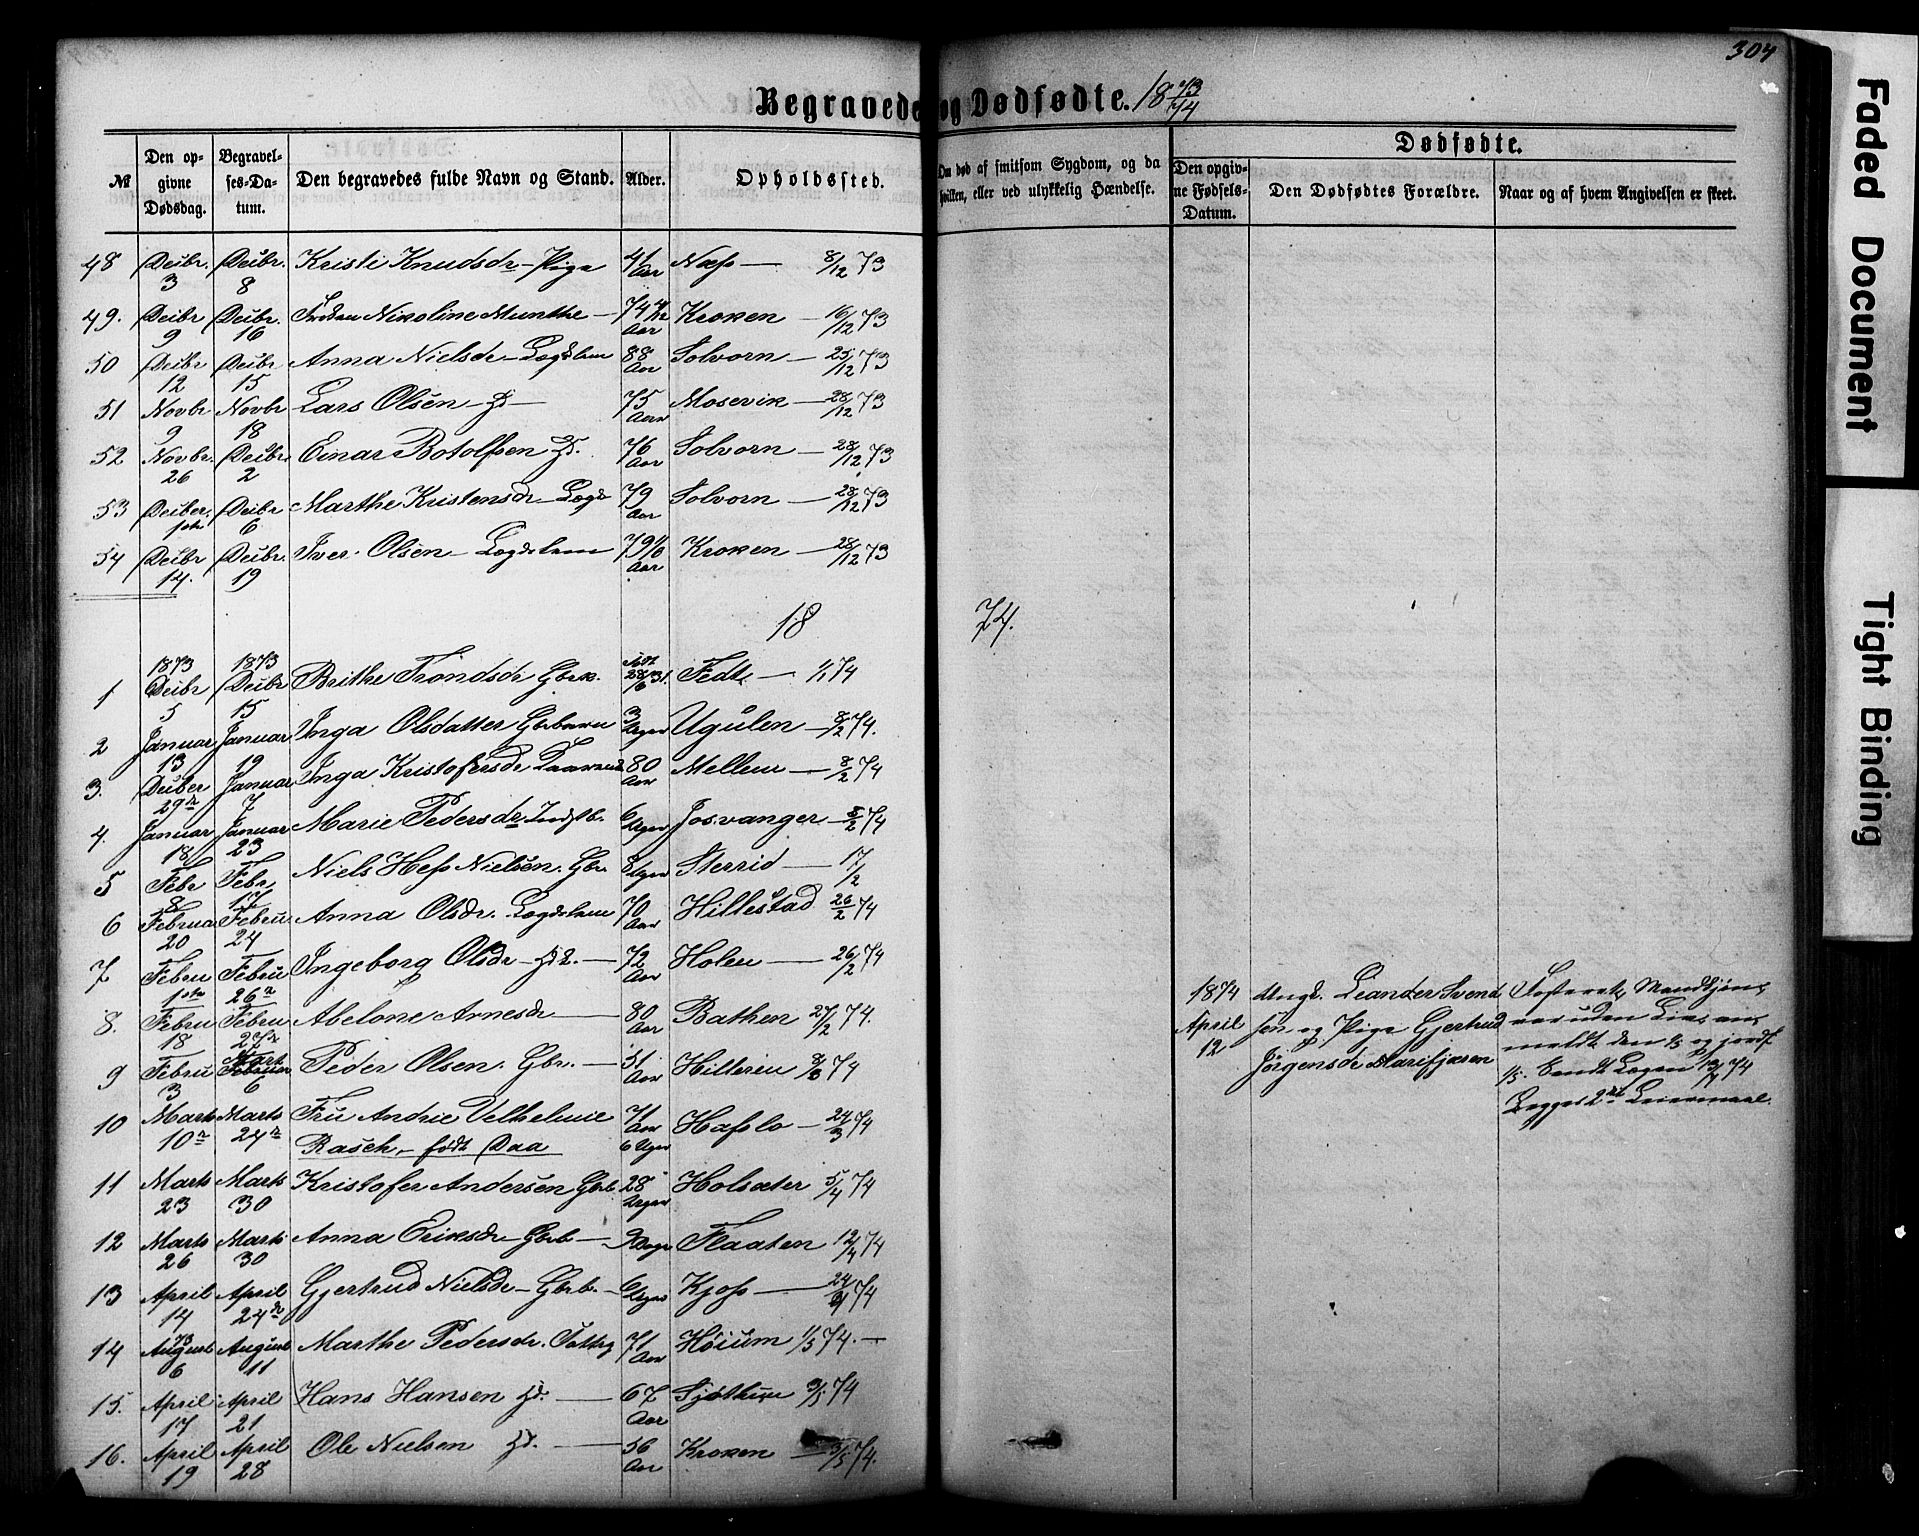 304
Begravede og Dødfødte. 18 73/74
Dødfødte.
№ Den opgivne Dødsdag. Begravelses-Datum. Den begravedes fulde Navn og Stand. Alder. Opholdssted. Om død af smitsom Sygdom, og da hvilken, eller ved ulykkelig Hændelse. Den opgivne Fødsels-Datum. Den Dødfødtes Forældre. Naar og af hvem Angivelsen er skeet.
48 Decbr. 3 Decbr. 8 Kristi Knudsdr Pige 41 Aar Næss — 8/12 73
49. Decbr 9 Decbr. 16 Nikoline Munthe — 74 Aar Kroken — 16/12 73
50 Decbr 12 Decbr 15 Anna Nielsdr — Lægdslem 88 Aar Solvorn — 25/12 73
51 Novbr 9 Novbr 18 Lars Olsen — 75 Aar Mosevik — 28/12 73
52 Novbr. 26 Decbr. 2 Einar Botolfsen 76 Aar Solvorn — 28/12 73
53 Decber. 1ste Decbr 6 Marthe Kristensdr — Lægds 79 Aar Solvorn — 28/12 73
54 Decbr 14. Decbr. 19 Iver Olsen — Lægdslem 79 Aar Kroken — 28/12 73
18 74.
1 1873 Decbr 5 1873 Decbr 15 Brithe Trondsdr Gbrk. Fedt — 1/1 74
2 Januar 13 Januar 19 Inga Olsdatter Gbrbarn 3 Uger Ugulen — 8/2 74.
3. Decber 29de Januar 7 Inga Kristofersdr 80 Aar Mellem — 8/2 74
4. Januar 18 Januar 23 Marie Pedersdr Indstb. 6 Uger Josvanger — 8/2 74
5 Febr 8 Febr 17 Niels Hess Nielsen. Gbr. 8 Uger Sterrid — 17/2
6 Februa 20 Febru 24 Anna Olsdr. Lægdslem 70 Aar Hillestad 26/2 74
7 Febru 1ste Febru 26de Ingeborg Olsdr — 72 Aar Holen — 26/2 74
8. Febru 18 Febru 27de Abelone Arnesdr — 80 Aar Bathen 27/2 74.
9 Febru 3 Mart 6 Peder Olsen. Gbr. — 51 Aar Hilleren 8/3 74
10 Marts 10de Marts 24de Fru Andrea Velhelmine Rasch, født Daa 71 Aar 6 Uger Hafslo — 24/3 74
11 Marts 23 Marts 30 Kristofer Andersen Gbrb. 28 Uger Holsæter 5/4 74
12 Marts 26 Marts 30 Anna Eriksdr Gbrb — Dage Flaaten 12/4 74
13 April 14 April 24de Gjertrud Nielsdr — Gbrb. — 6 Uger Kjoss — 24/4 74
14 73 August 6 August 11 Marthe Pedersdr. Fattig 71 Aar Høium 1/5 74. —
15. April 17 April 21 Hans Hansen — 67 Aar 3/5 74
16. April 19 April 28 Ole Nielsen — 56 Aar Kroken — 3/5 74.
1874 April 12
Ungk. Leander Svendsen og Pige Gjertrud Jørgensdr Marifjæren
Fosteret, Mandkjøn, var uden Liv, anmeldt den 1/5 og jordf. 1/5. Sendt Lægen 13/4 74
Begges 2det Leiermaal.
Faded Document
Tight Binding